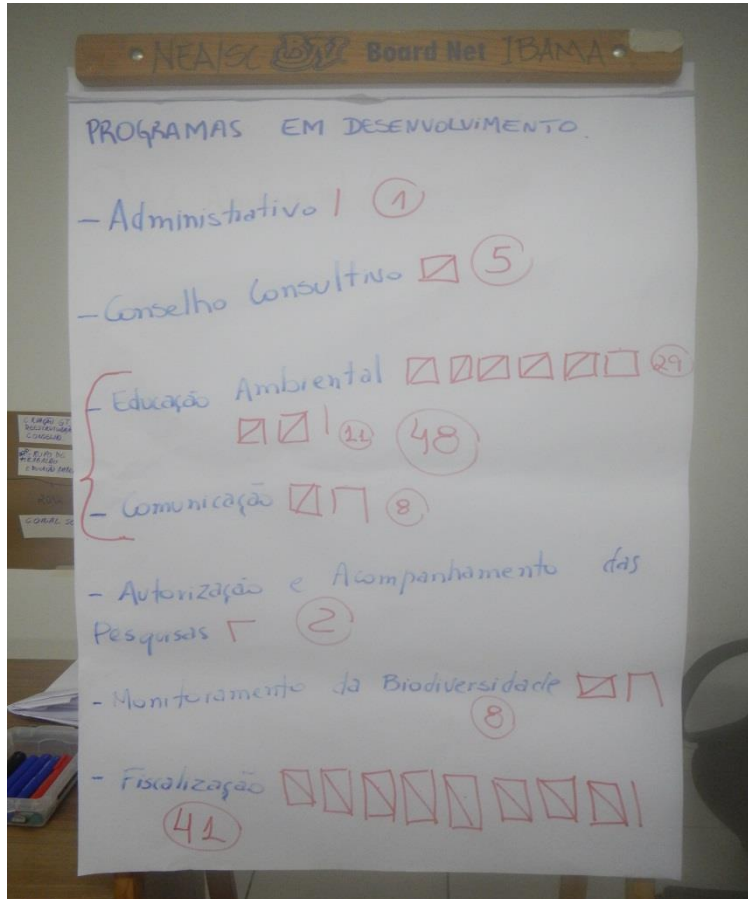 NEA/SC Board Net IBAMA
PROGRAMAS EM DESENVOLVIMENTO.
- Administrativo 1
- Conselho Consultivo 5
- Educação Ambiental 29
11 48
- Comunicação 8
- Autorização e Acompanhamento das
Pesquisas 2
- Monitoramento da Biodiversidade
8
- Fiscalização
41